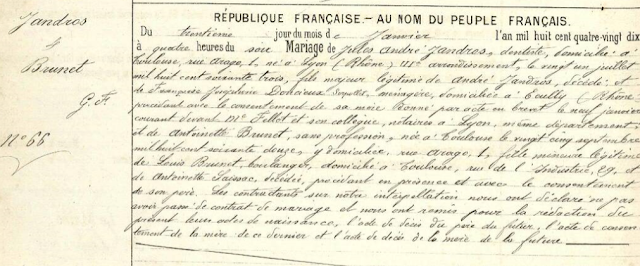 Jandros
&
Brunet
G. F.
N° 66
RÉPUBLIQUE FRANÇAISE.—AU NOM DU PEUPLE FRANÇAIS.
Du trentième jour du mois de Janvier l'an mil huit cent quatre-vingt dix
à quatre heures du soir Mariage de Jules André Jandros, dentiste, domicilié à
Toulouse, rue Arago, 1, né à Lyon (Rhône) III.e arrondissement, le vingt un juillet
mil huit cent soixante trois, fils majeur légitime de André Jandros, décédé, et
de Françoise Joséphine Doncieux, ménagère, domiciliée à Ecully (Rhône
procédant avec le consentement de sa mère donné par acte en brevet le neuf janvier
courant devant M.e Fellot et son collègue, notaires à Lyon, même département
et de Antoinette Brunet, sans profession, née à Toulouse le vingt cinq septembre
mil huit cent soixante douze, y domiciliée, rue Arago, 1, fille mineure légitime
de Louis Brunet, boulanger, domicilié à Toulouse, rue de l'Industrie, 29, et
de Antoinette Saissac, décédée, procédant en présence et avec le consentement
de son père. Les contractants sur notre interpellation nous ont déclaré ne pas
avoir passé de contrat de mariage et nous ont remis pour la rédaction du
présent leurs actes de naissance, l'acte de décès du père du futur, l'acte de consen
tement de la mère de ce dernier et l'acte de décès de la mère de la future